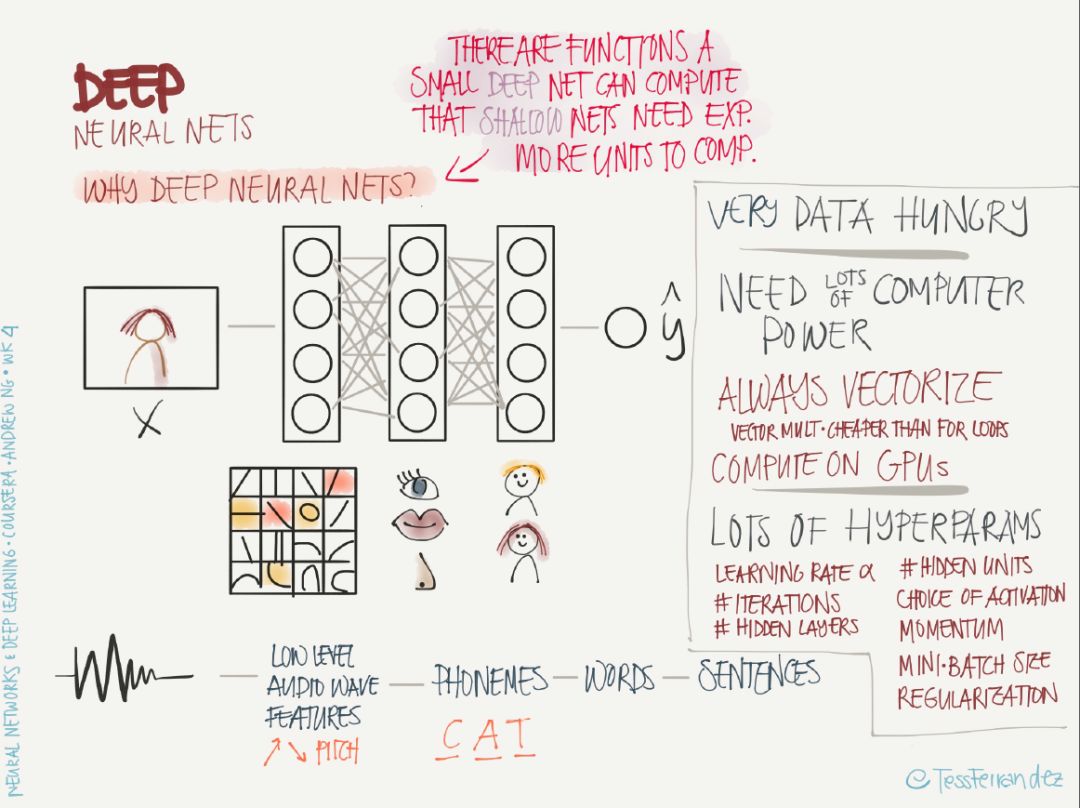 DEEP
NEURAL NETS
THERE ARE FUNCTIONS A
SMALL DEEP NET CAN COMPUTE
THAT SHALLOW NETS NEED EXP.
MORE UNITS TO COMP.
WHY DEEP NEURAL NETS?
X
^
y
VERY DATA HUNGRY
NEED LOTS OF COMPUTER
POWER
ALWAYS VECTORIZE
VECTOR MULT · CHEAPER THAN FOR LOOPS
COMPUTE ON GPUs
LOTS OF HYPERPARAMS
LEARNING RATE α
# ITERATIONS
# HIDDEN LAYERS
# HIDDEN UNITS
CHOICE OF ACTIVATION
MOMENTUM
MINI-BATCH SIZE
REGULARIZATION
LOW LEVEL
AUDIO WAVE
FEATURES
↗↘ PITCH
PHONEMES
C A T
WORDS
SENTENCES
NEURAL NETWORKS & DEEP LEARNING · COURSERA · ANDREW NG · WK 4
@TessFerrandez